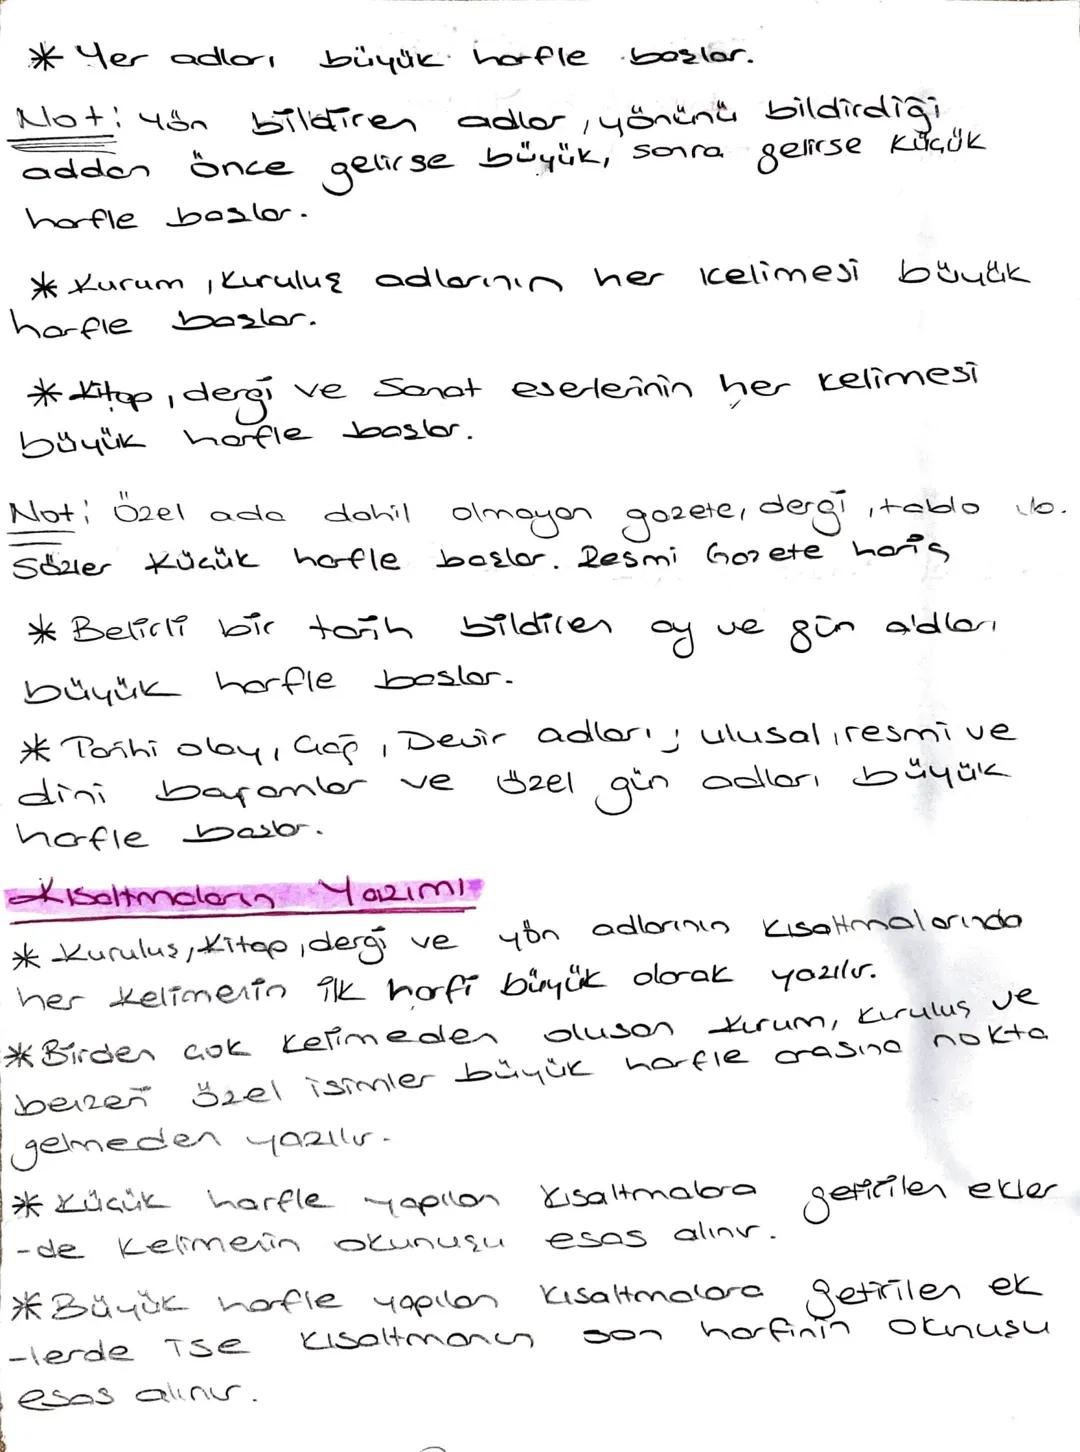 * Yer adları büyük harfle başlar.
Not: Yön bildiren adlar, yönünü bildirdiği
addan önce gelirse büyük, sonra gelirse küçük
harfle başlar.
* Kurum, Kuruluş adlarının her kelimesi büyük
harfle başlar.
* Kitap, dergi ve Sanat eserlerinin her kelimesi
büyük harfle başlar.
Not: Özel ada dahil olmayan gazete, dergi, tablo vb.
Sözler küçük hafle başlar. Resmi Gazete hariç
* Belirli bir tarih bildiren ay ve gün adları
büyük harfle başlar.
* Tarihi olay, Çağ, Devir adları; ulusal, resmi ve
dini bayramlar ve özel gün adları büyük
harfle başlar.
Kısaltmaların Yazımı
* Kuruluş, Kitap, dergi ve yön adlarının kısaltmalarında
her kelimenin ilk harfi büyük olarak yazılır.
* Birden çok kelimeden oluşan kurum, kuruluş ve
benzeri özel isimler büyük harfle arasına nokta
gelmeden yazılır.
* Küçük harfle yapılan kısaltmalara getirilen ekler
-de kelimenin okunuşu esas alınır.
* Büyük harfle yapılan kısaltmalara getirilen ek
-lerde ise kısaltmanın son harfinin okunuşu
esas alınır.